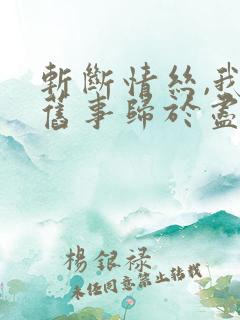 斬斷情絲,我
舊事歸於盡
楊銀祿
未经同意禁止转载